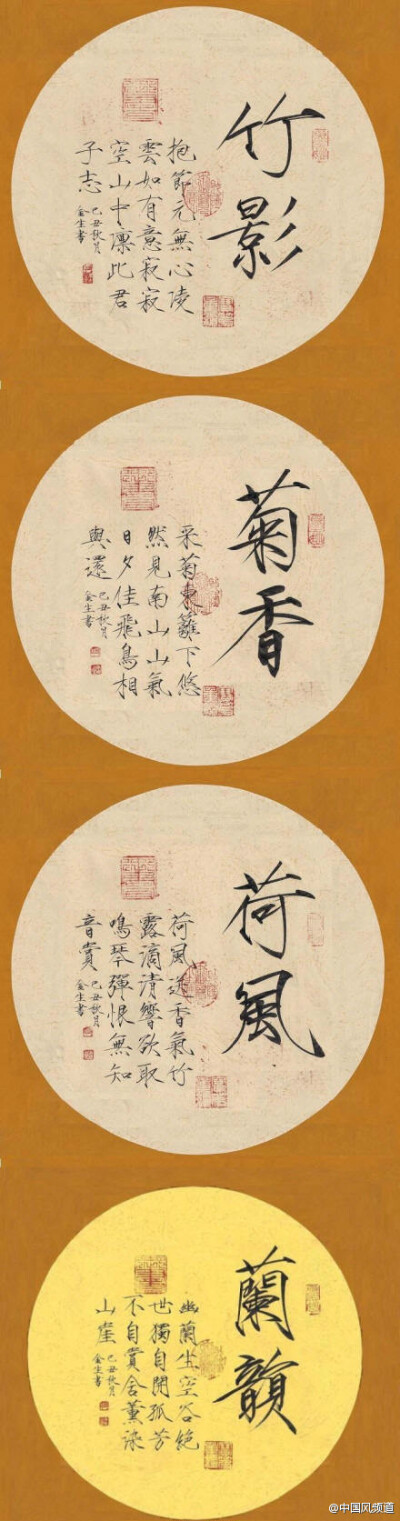 竹影
抱節元無心陵
雲如有意寂寂
空山中凛此君
子志
己丑秋月
金生書
菊香
采菊東籬下悠
然見南山山氣
日夕佳飛鳥相
與還
己丑秋月
金生書
荷風
荷風送香氣竹
露滴清響欲取
鳴琴彈恨無知
音賞
己丑秋月
金生書
蘭韻
幽蘭生空谷絶
世獨自開孤芳
不自賞含薰染
山崖
己丑秋月
金生書
@中国风频道